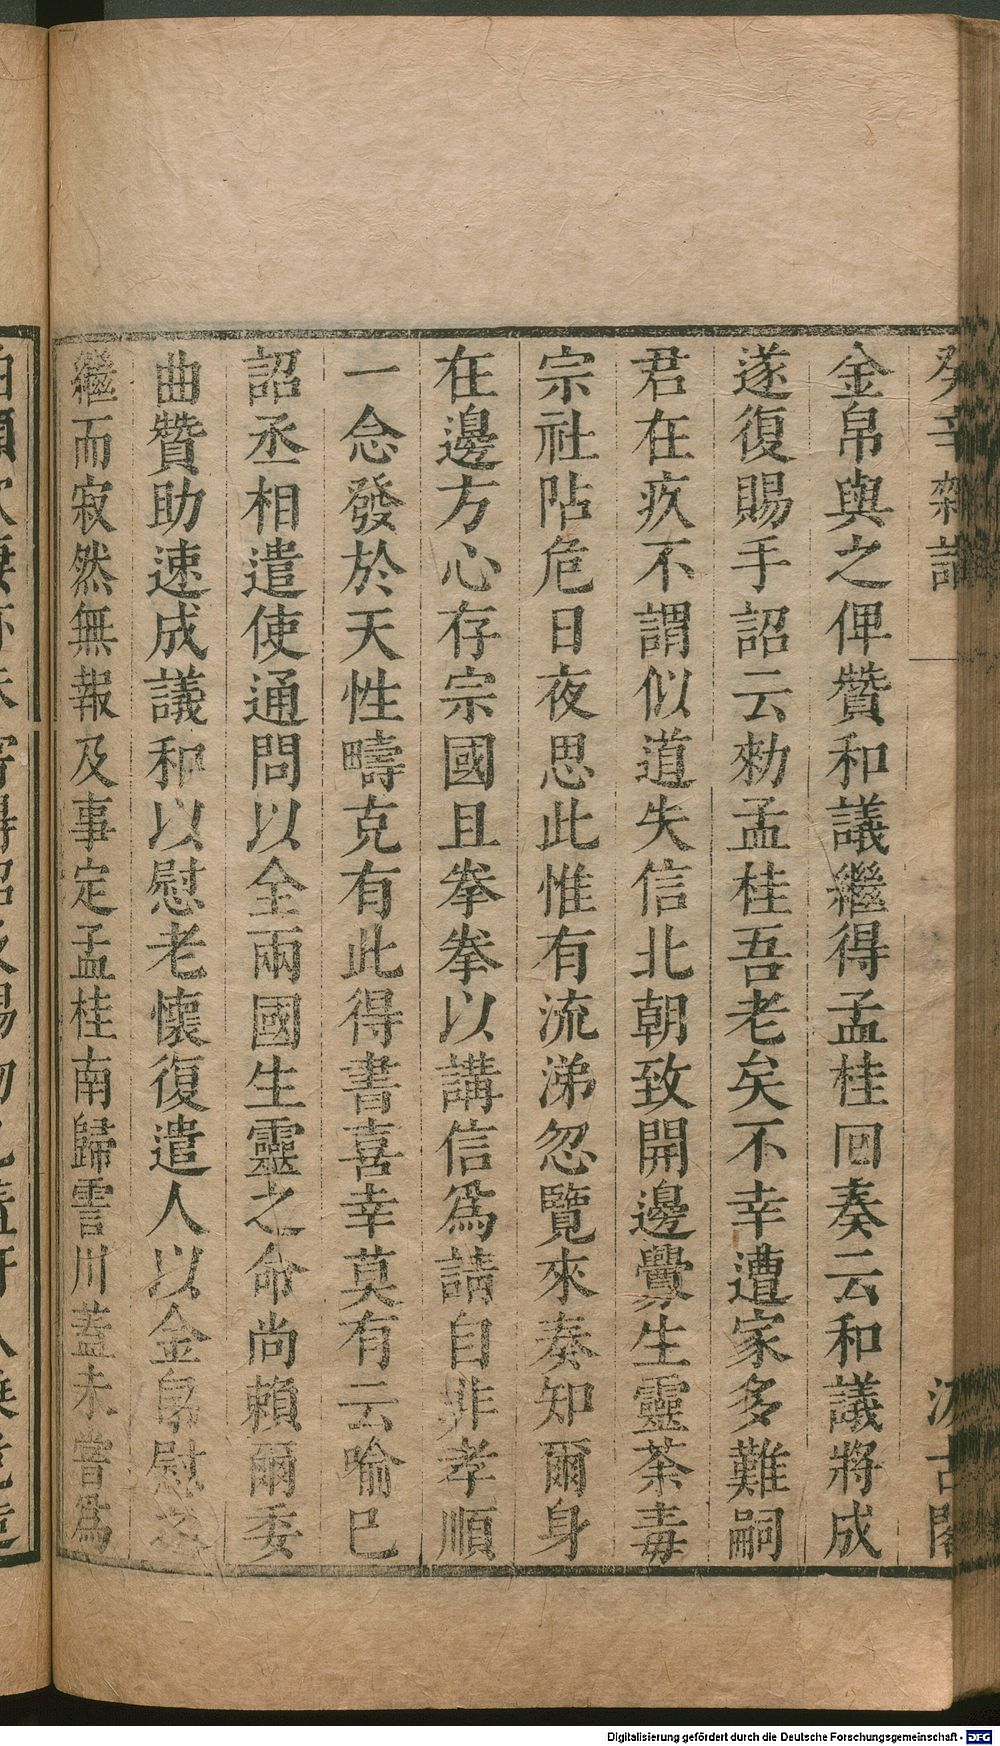 癸辛雜識
汲古閣
金帛與之俾贊和議繼得孟桂回奏云和議將成
遂復賜手詔云勑孟桂吾老矣不幸遭家多難嗣
君在疚不謂似道失信北朝致開邊釁生靈荼毒
宗社阽危日夜思此惟有流涕忽覽來奏知爾身
在邊方心存宗國且拳拳以講信爲請自非孝順
一念發於天性疇克有此得書喜幸莫有云喻巳
詔丞相遣使通問以全兩國生靈之命尚賴爾委
曲贊助速成議和以慰老懷復遣人以金帛慰之
繼而寂然無報及事定孟桂南歸霅川蓋未嘗爲
Digitalisierung gefördert durch die Deutsche Forschungsgemeinschaft - DFG